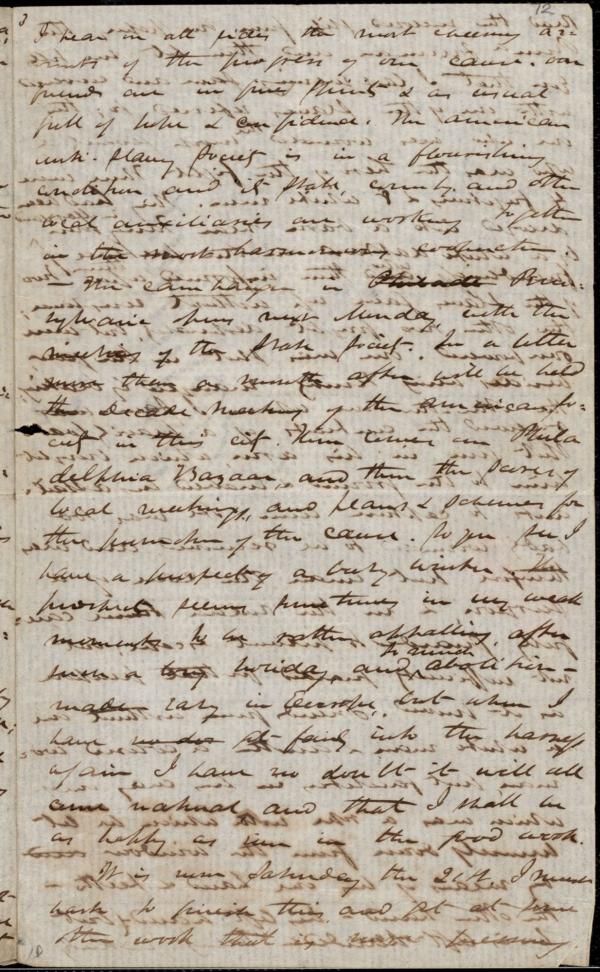 3
12
I hear on all sides the most cheering ac=
counts of the progress of our cause. our
friends are in good spirits & as usual
full of hope & confidence. The American
Anti-Slavery Society is in a flourishing
condition and its state, county, and other
local auxiliaries are working together
in the most harmonious conjunction.
— The campaign in Philadel Penn=
sylvania opens next Monday, with the
meeting of the State Society. In a little
more than a month after will be held
the Decade Meeting of the American So=
ciety in this city. Then comes our Phila
delphia Bazaar, and then the series of
local meetings, and plans & schemes for
the promotion of the cause. So you see I
have a prospect of a busy winter. The
prospect seems sometimes in my weak
moments to be rather appalling, after
such a long holiday and abolition-
made easy in Europe, but when I
have got fairly into the harness
again I have no doubt it will all
come natural and that I shall be
as happy as ever in the good work.
It is now Saturday the 21st. I must
hasten to finish this and get at some
other work that is more pressing.
18